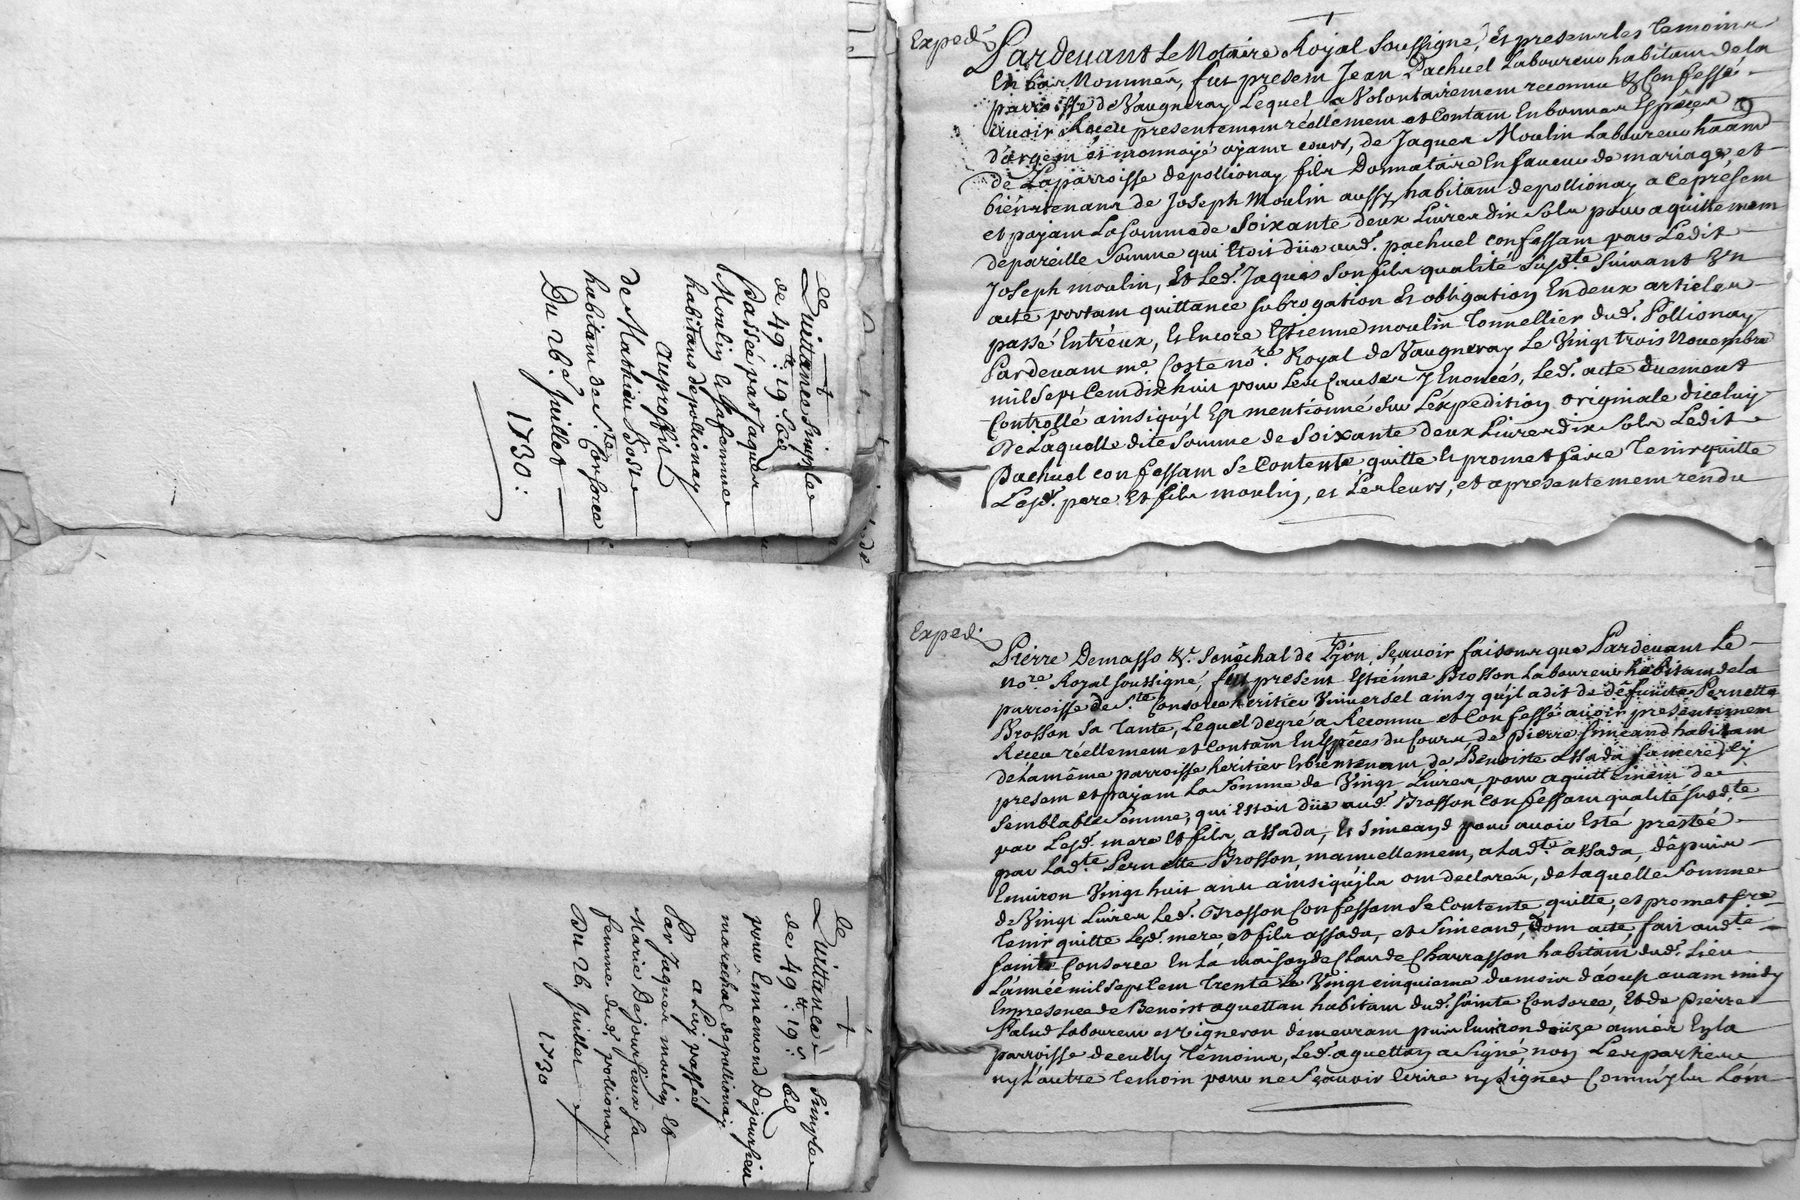 de
Quittance Simple
de 49tt: 19 s: 6d
Passée par Jaques
Moulin et sa femme
habitans de pollionay
Au proffit
de Mathieu Bost
habitant de Ste. Consorce
Du 26e Juillet
1730:
de
Quittance Simple
de 49tt: 19s: 6d
pour Ennemond Dejoursieu
maréchal de pollionay
a Luy passée
Par Jaques moulin Et
Marie Dejoursieu sa
femme dud. pollionay
Du 26. Juillet
1730
Exped.
Pardevant Le Notaire Royal Soussigné, Et presents les temoins
En bas Nommés, fut present Jean Pachuel Laboureur habitant de la
parroisse de Vaugneray Lequel a Volontairement reconnu & Confessé
avoir Receu presentement réellement et Contant En bonnes Espèces
d'argent et monnoyé ayant cours, de Jaques Moulin Laboureur
de La parroisse de pollionay fils Donnataire En faveur de mariage, et
biéntenant de Joseph Moulin aussy habitant de pollionay a Ce present
et payant La Somme de Soixante deux Livres dix Sols pour aquittement
de pareille Somme qui Etoit düe aud. pachuel confessant par Ledit
Joseph moulin, Et Led. Jaques Son fils qualité Susdte. Suivant Un
acte portant quittance subrogation Et obligation En deux articles
passé Entr'eux, Et Encore Estienne moulin Tonnellier dud. Pollionay
Pardevant me. Coste nore. Royal de Vaugneray Le Vingt trois Novembre
mil Sept Cent dix huit pour Les Causes y Enoncés, Led. acte düement
Controllé ainsi qu'il Est mentionné Sur L'expedition originale d'iceluy
De Laquelle dite Somme de Soixante deux Livres dix Sols Ledit
Pachuel confessant Se Contente, quitte Et promet faire Tenir quitte
Lesd. pere Et fils moulin, et Les leurs, et a presentement rendu
Exped.
Pierre Demasso &r. Senêchal de Lyon, Sçavoir faisons que Pardevant Le
nore. Royal soussigné, fut present Estiénne Brosson Laboureur habitant de la
parroisse de Ste. Consorce heritier Universel ainsy qu'il a dit de défunte Pernette
Brosson Sa Tante, Lequel de gré a Reconnu et Confessé avoir presentement
Receu réellement et Contant En Espèces du Cours, de Pierre Simeand habitant
de la même parroisse heritier Et bientenant de Benoiste assada sa mere icy
present et payant La Somme de Vingt Livres, pour aquittement de
Semblable Somme, qui Estoit düe aud. Brosson Confessant qualité Susd.te
par Lesd. mere Et fils assada, Et Simeand pour avoir Esté prestée
par Ladte. Pernette Brosson, manuellement, a Ladte. assada, dépuis
Environ Vingt huit ans ainsi qu'ils ont declarés, de Laquelle Somme
de Vingt Livres Led. Brosson Confessant Se Contente, quitte, et promet fre.
Tenir quitte Lesd. mere, et fils assada, et Simeand, dont acte, fait aud.te
Sainte Consorce En La maison de Claude Charrasson habitant dud. Lieu
L'année mil Sept Cent Trente Le Vingt cinquieme du mois d'aoust avant midy
En presence de Benoist aquettan habitant dud. Sainte Consorce, Et de Pierre
Palud Laboureur et Vigneron demeurant puis Environ douze années En la
parroisse decully Témoins, Led. aquettan a Signé, non Les parties
ny L'autre temoin pour ne Sçavoir Ecrire ny Signer Comm'ils L'ont